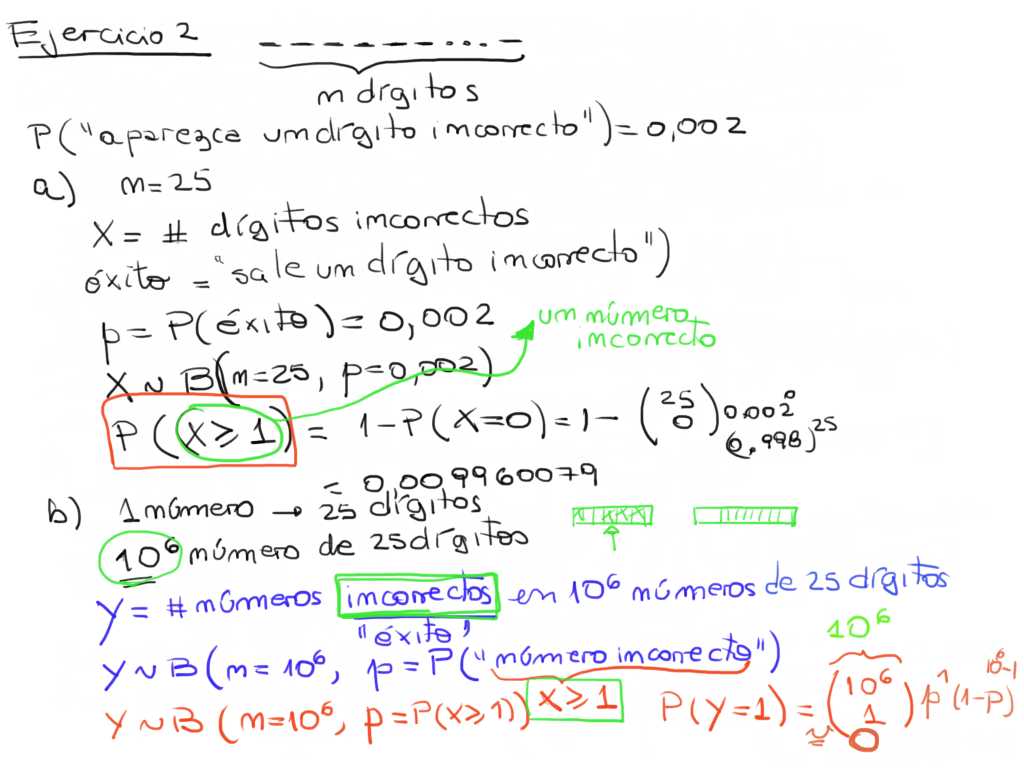 Ejercicio 2
n dígitos
P("aparezca un dígito incorrecto") = 0,002
a) n = 25
X = # dígitos incorrectos
éxito = "sale un dígito incorrecto")
p = P(éxito) = 0,002
un número
incorrecto
X ~ B(n=25, p=0,002)
P(X ≥ 1) = 1 - P(X=0) = 1 - (25 0) 0.002^0 (0.998)^25
= 0,009960079
b) 1 número → 25 dígitos
10^6 número de 25 dígitos
Y = # números incorrectos en 10^6 números de 25 dígitos
"éxito"
10^6
Y ~ B(n = 10^6, p = P("número incorrecto")
Y ~ B(n=10^6, p = P(X ≥ 1)) X ≥ 1 P(Y = 1) = (10^6 1) p^1 (1-p)^10^6-1
0